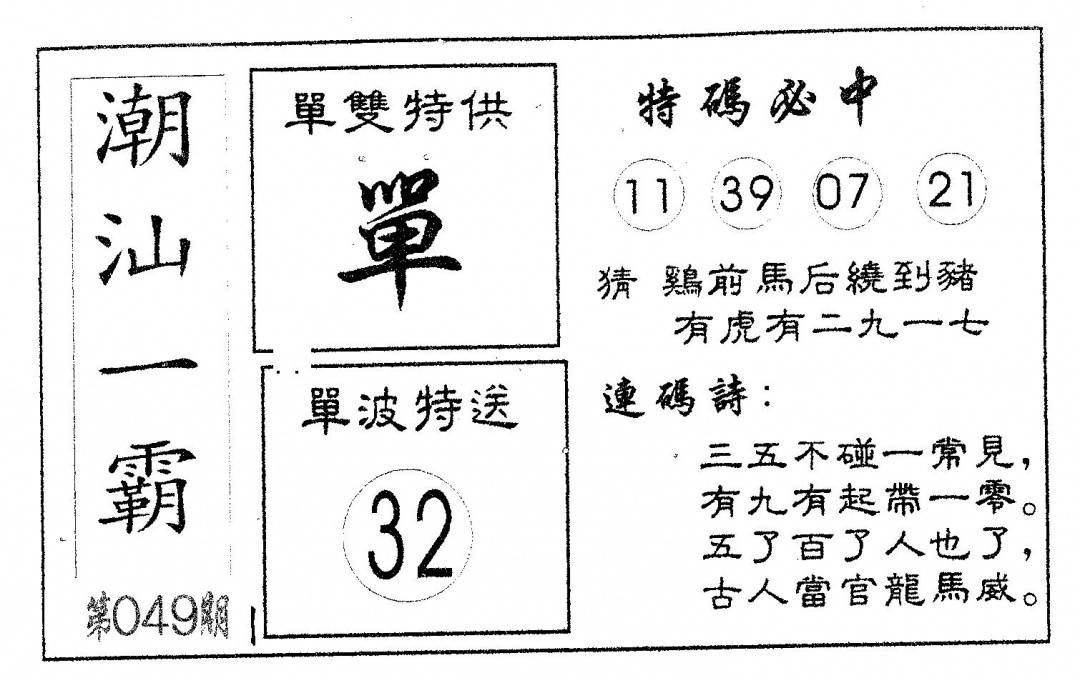 潮汕一霸
第049期
單雙特供
單
單波特送
32
特碼必中
11 39 07 21
猜 鷄前馬后繞到豬
有虎有二九一七
連碼詩：
三五不碰一常見，
有九有起帶一零。
五了百了人也了，
古人當官龍馬威。